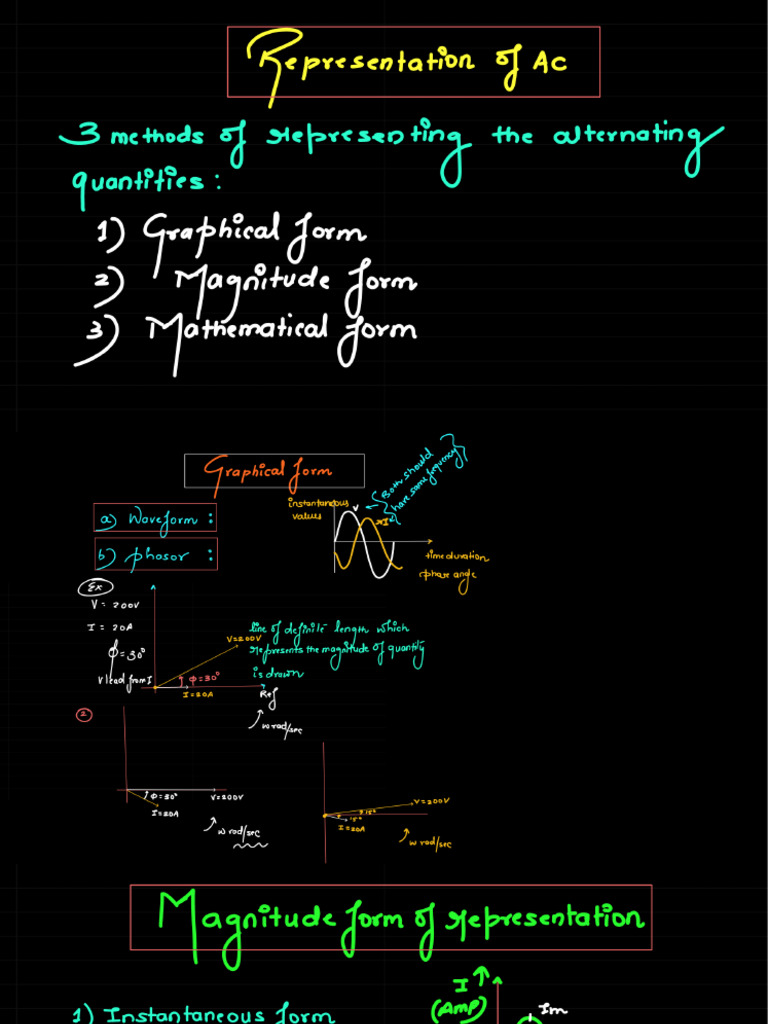 Representation of AC
3 methods of representing the alternating
quantities:
1) Graphical form
2) Magnitude form
3) Mathematical form
Graphical form
Both should
have same frequency
instantaneous
values
V
I
a) Waveform :
b) phasor :
time duration
phase angle
Ex
V = 200V
I = 20A
φ = 30°
V lead from I
line of definite length which
V=200V
represents the magnitude of quantity
is drawn
φ=30°
I=20A
Ref
w rad/sec
2
φ=30°
V=200V
I=20A
w rad/sec
V=200V
15°
15°
I=20A
w rad/sec
Magnitude form of representation
I ↑
(Amp)
Im
1) Instantaneous form